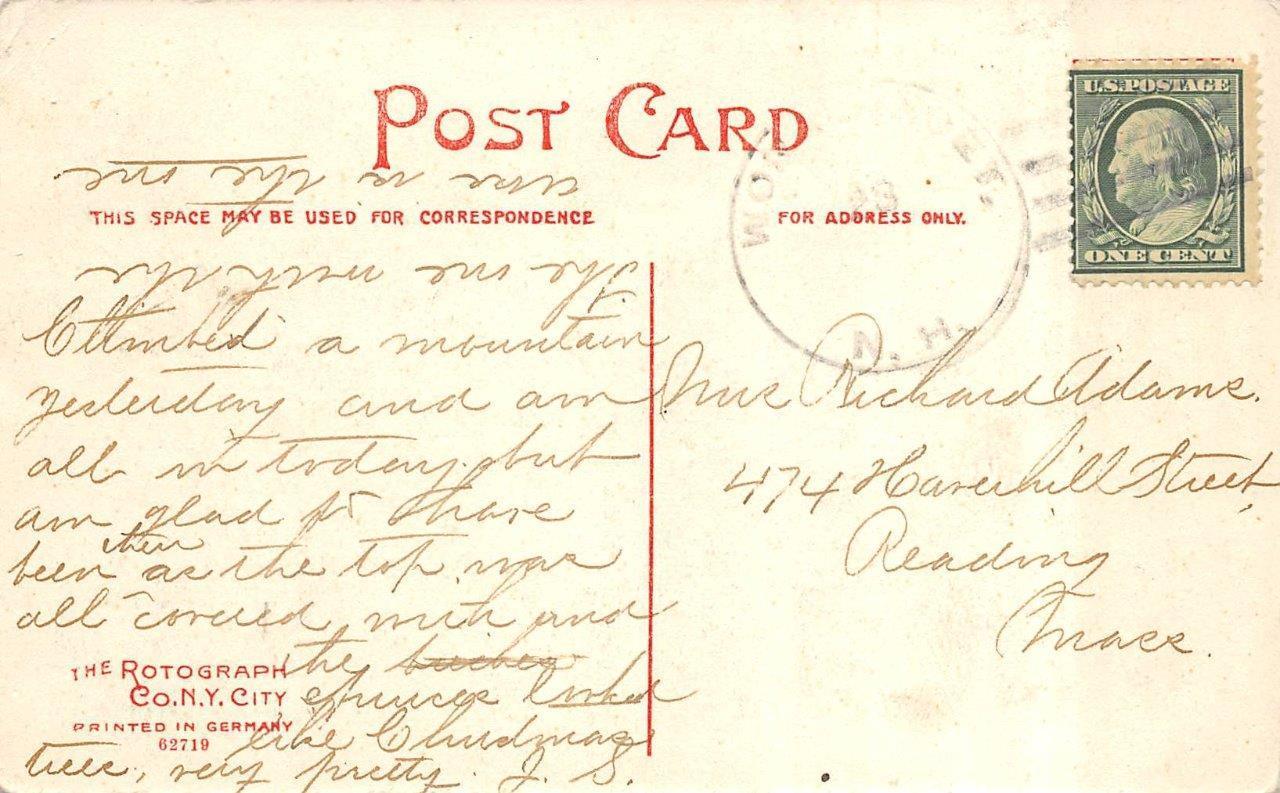 POST CARD
THIS SPACE MAY BE USED FOR CORRESPONDENCE
FOR ADDRESS ONLY.
U.S. POSTAGE
ONE CENT
WO
ET,
23
N. H.
Climbed a mountain
yesterday and am
all in today, but
am glad to have
been then as the top was
all covered with and
the birches
spruces looked
like Christmas
trees, very pretty. J. S.
The one next the
one is the one
Mrs Richard Adams.
474 Haverhill Street
Reading
Mass.
THE ROTOGRAPH
CO. N.Y. CITY
PRINTED IN GERMANY
62719